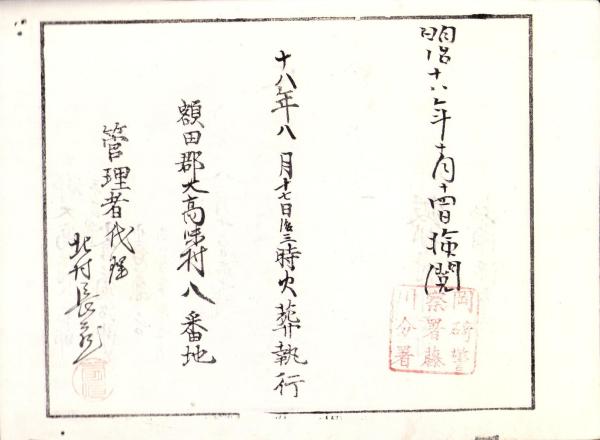 明治十八年十月十四日検閲
岡碕警
察署藤
川分署
十八年八月十七日后三時火葬執行
額田郡大高味村八番地
管理者代理
北村長